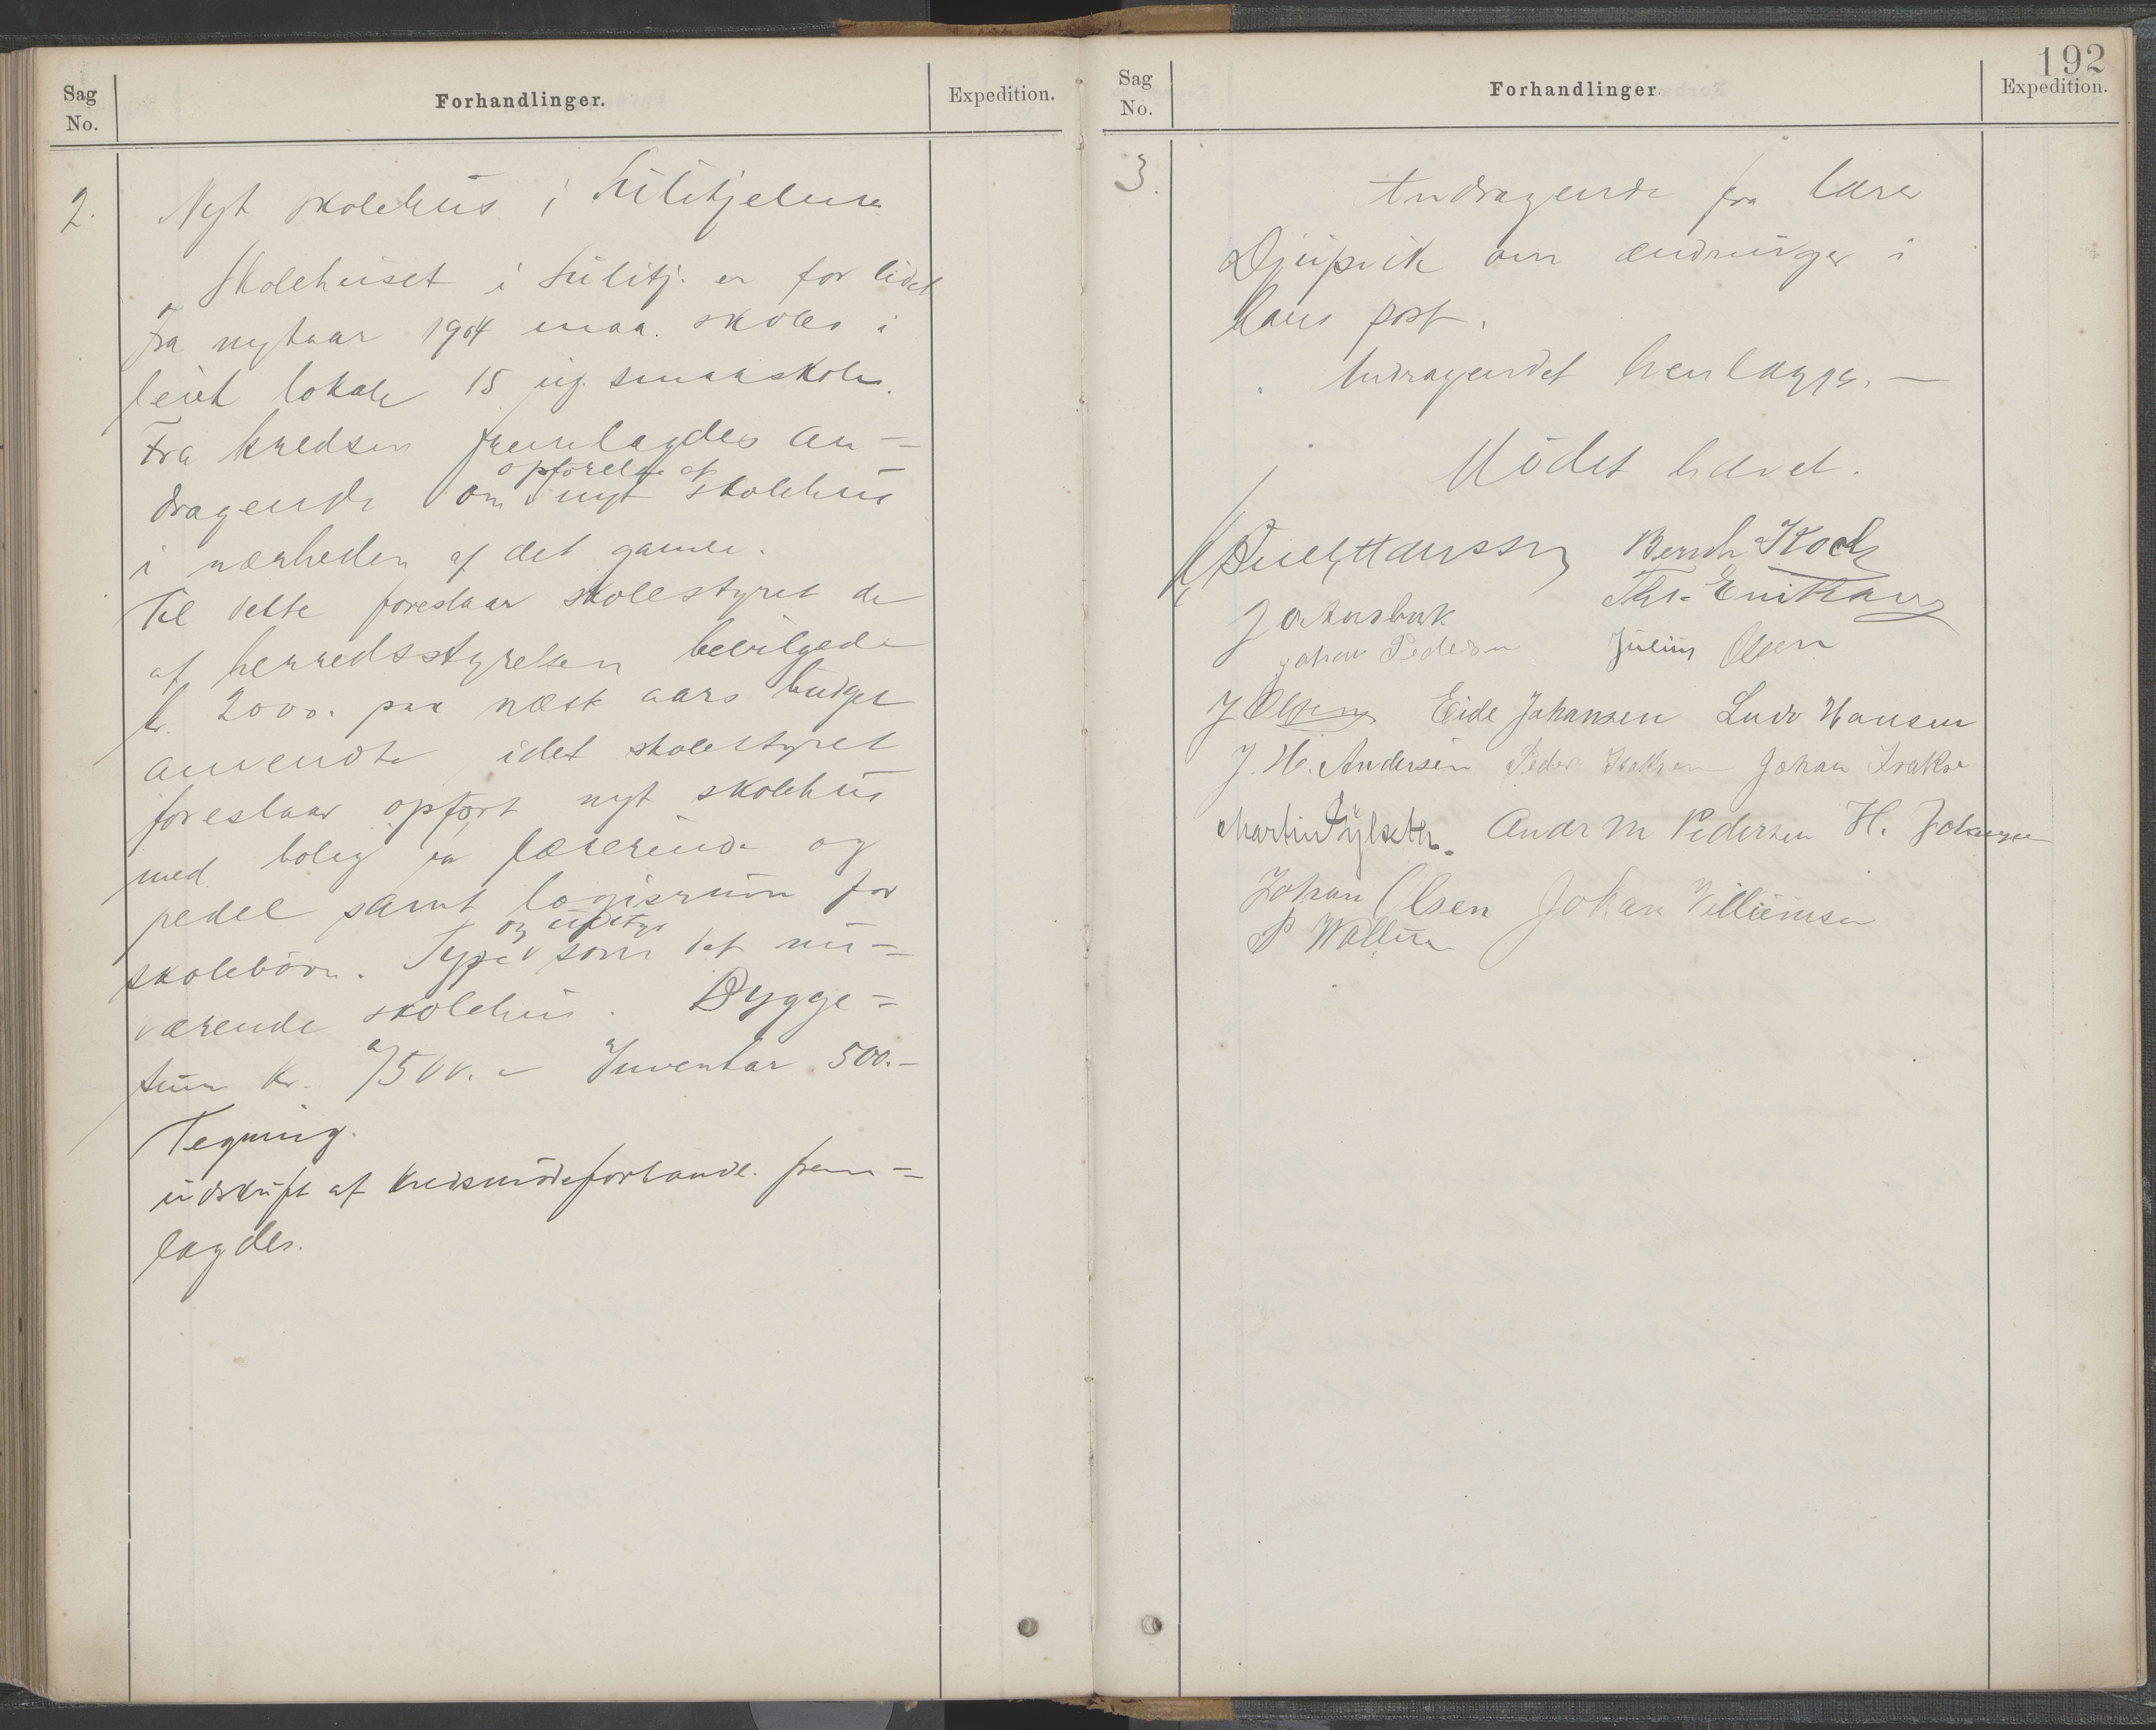 Sag
No.
Forhandlinger.
Expedition.
2.
Nyt skolehus i Sulitjelma
Skolehuset i Sulitj. er for lidet
Fra nytaar 1904 maa skoles i
leiet lokale 15 ug. smaaskole.
Fra kredsen fremlagdes an-
opförelse af
dragende om nyt skolehus
i nærheden af det gamle.
Til dette foreslaar skolestyret de
af herredsstyrelsen bevilgede
kr. 2000. paa næste aars budget
anvendte, idet skolestyret
foreslaar opført nyt skolehus
med bolig for lærerinde og
pedel samt logisrum for
og udstyr
skolebörn. Type som det nu-
værende skolehus. Bygge-
sum kr. 7500.- Inventar 500.-
Tegning.
udskrift af kredsmödeforhandl. frem-
lagdes.
192
Sag
No.
Forhandlinger
Expedition.
3.
Andragende fra lærer
Djupvik om ændringer i
hans post.
Andragendet henlægges.-
Mödet hævet.
Hansen Bernh Koch
Johan Pedersen Julius Olsen
J Olsen Eide Johansen Ludv Hansen
J. H. Andersen Peder Johan
Martin Andr M Pedersen H.
Johan Olsen Johan Villiumsen
P Wallin